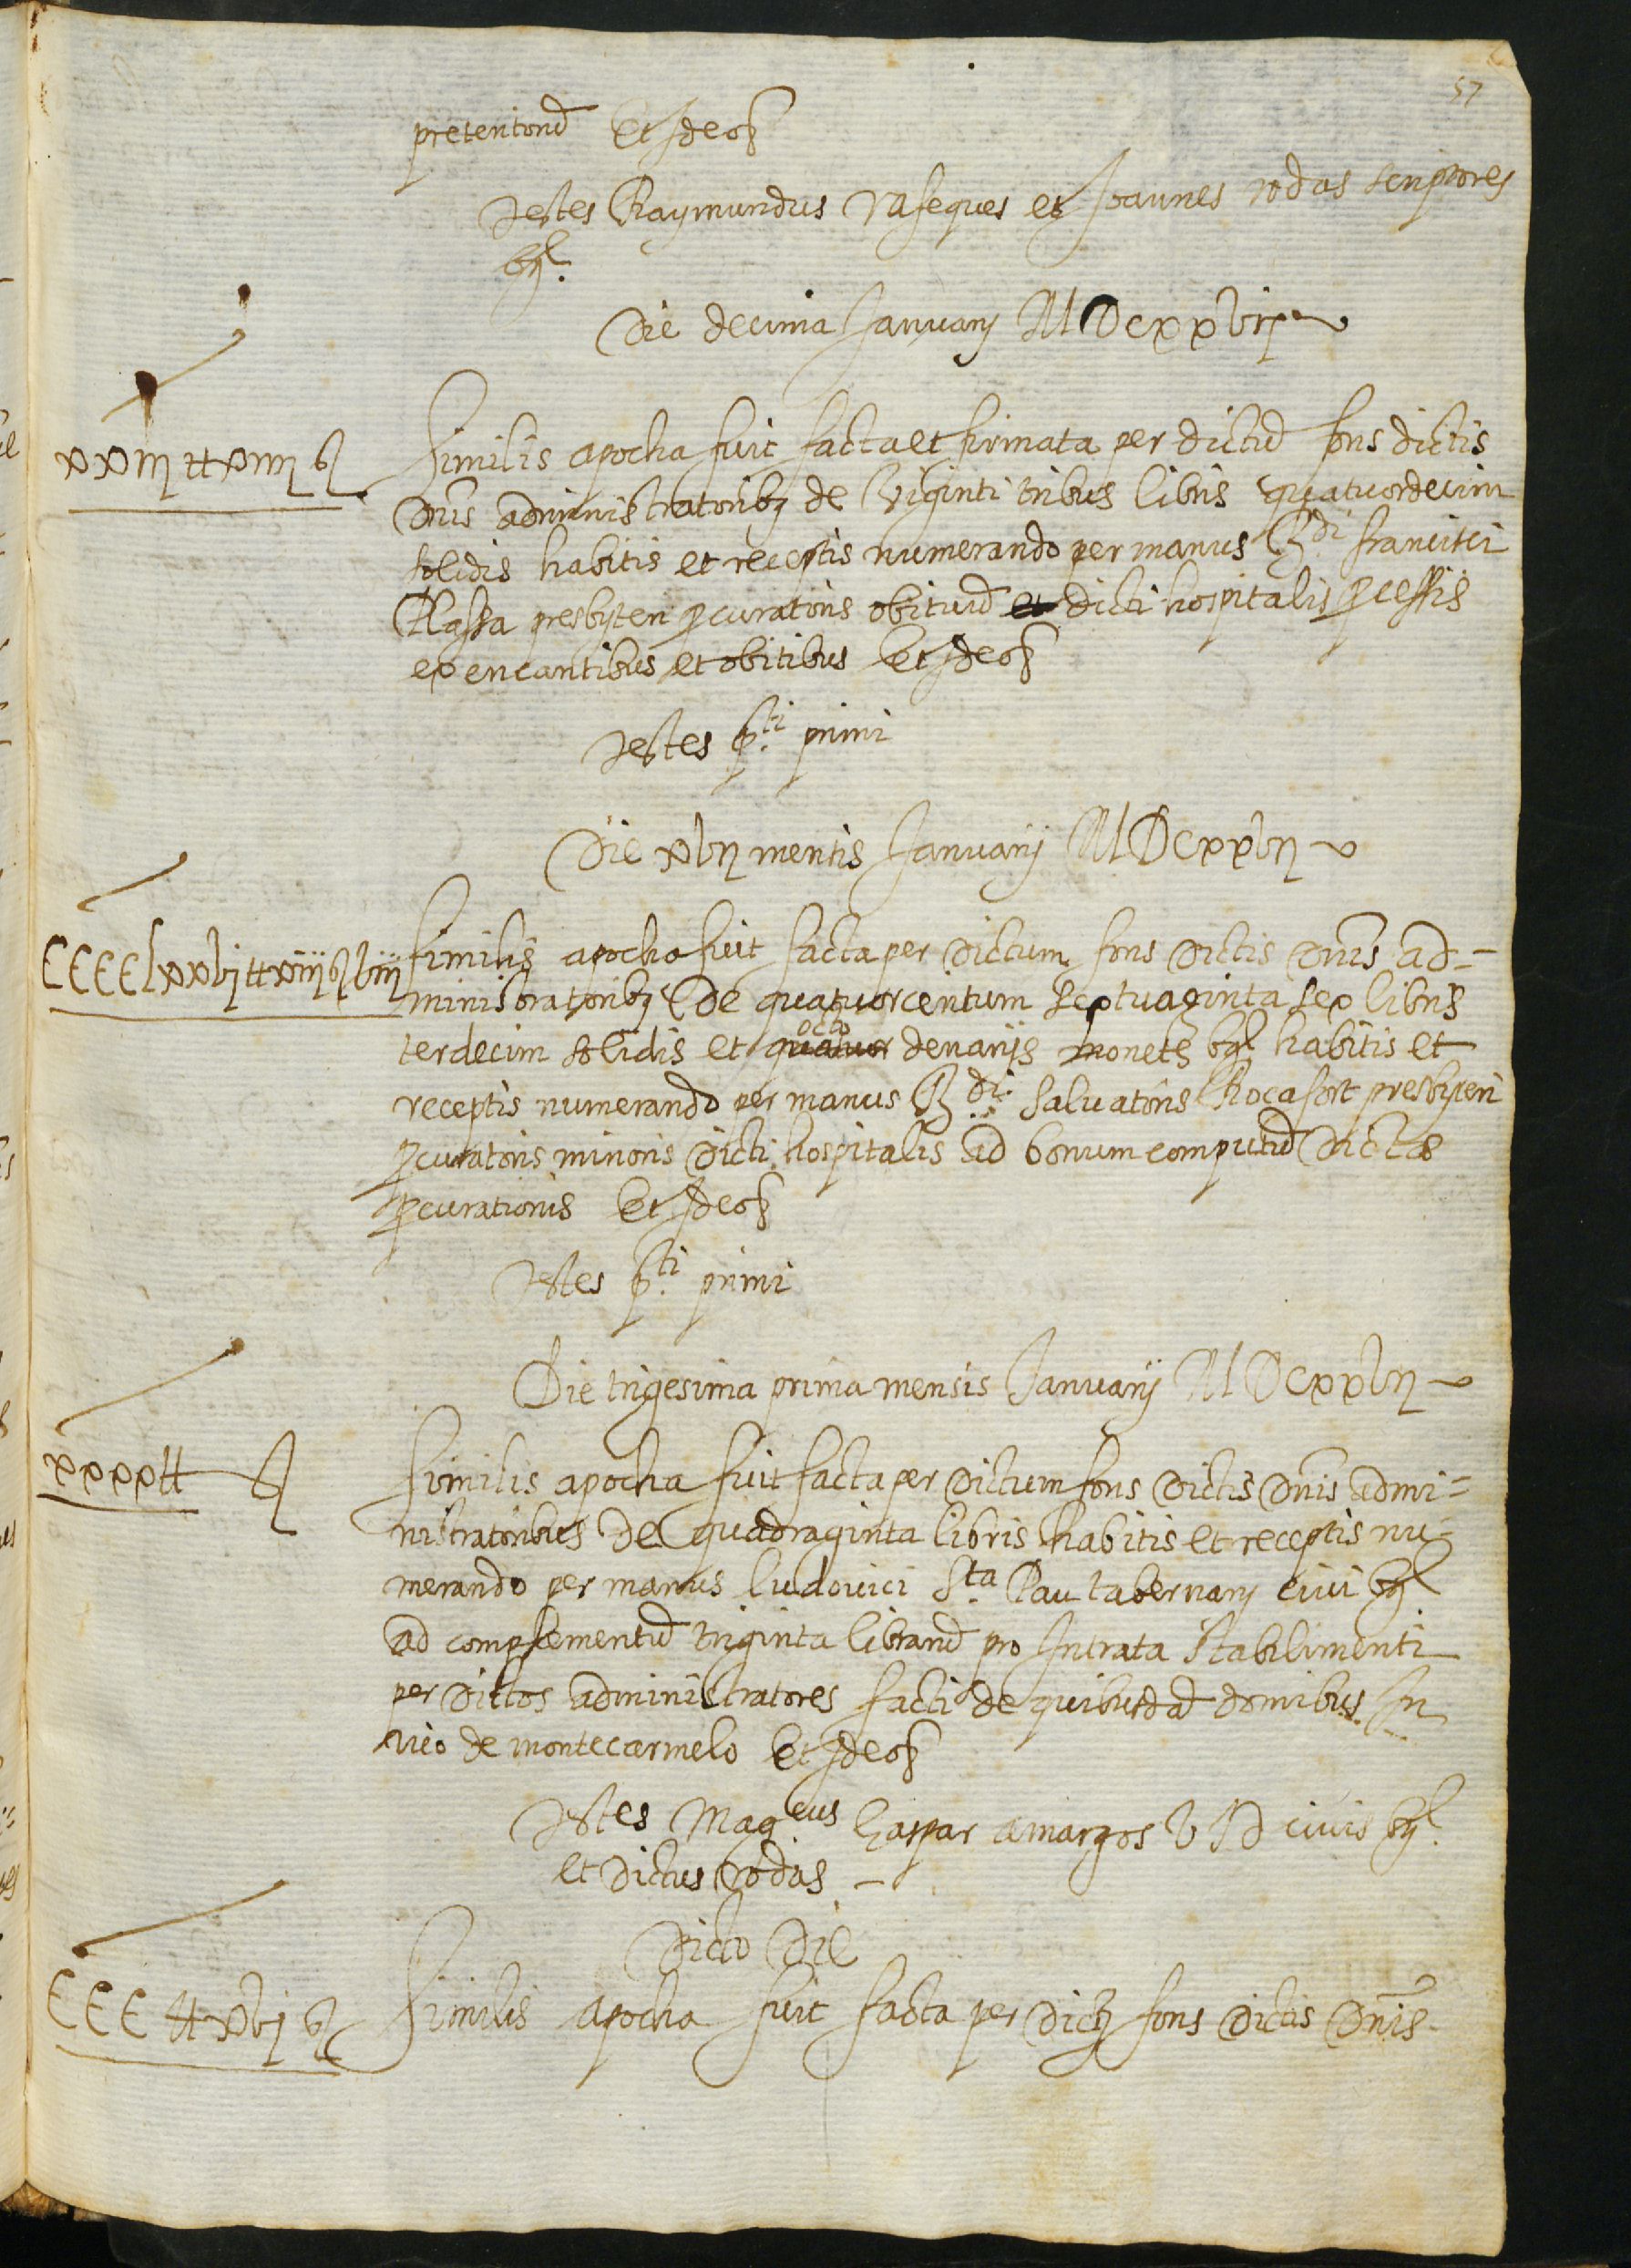 57
pretentorū Et ideo ꝛ
Testes Raymundus Vaseques et Joannes rodas scriptores
bẏl.
Die decima Januarij MDcxxvij
xxiij tt xiiij ß Similis apocha fuit facta et firmata per dictū fons dictis
Dn̄is administratoribȝ de Viginti tribus libris quatuordecim
solidis habitis et receptis numerando per manus R.di francisci
Massa presbyteri ꝓcuratoris obituū et dicti hospitalis ꝓcessis
ex encantibus et obitibus Et ideo ꝛ
Testes p.ti primi
Die xvij mensis Januarij MDcxxvij
CCCClxxvj tt xiij ß viij Similis apocha fuit facta per dictum fons dictis Dn̄is ad=
ministratoribȝ de quatuorcentum septuaginta sex libris
terdecim solidis et quatuor octo denarijs monetȩ bẏl habitis et
receptis numerando per manus R.di Saluatoris Rocafort presbyteri
ꝓcuratoris minoris dicti hospitalis ad bonum computū dictæ
ꝓcurationis Et ideo ꝛ
Testes p.ti primi
Die trigesima prima mensis Januarij MDcxxvij
xxxx tt ß Similis apocha fuit facta per dictum fons dictis Dn̄is admi=
nistratoribus de quadraginta libris habitis et receptis nu=
merando per manus ludovici S.ta Pau tabernarij civi bẏl
ad complementū triginta librarū pro Intrata stabilimenti
per dictos administratores facti de quibusdā domibus In
vico de montecarmelo Et ideo ꝛ
Testes Mag.cus Gaspar amargos V J D civis bẏl.
et dictus rodas
Dicto Die
CCC tt xvj ß Similis apocha fuit facta per dictȝ fons dictis Dn̄is